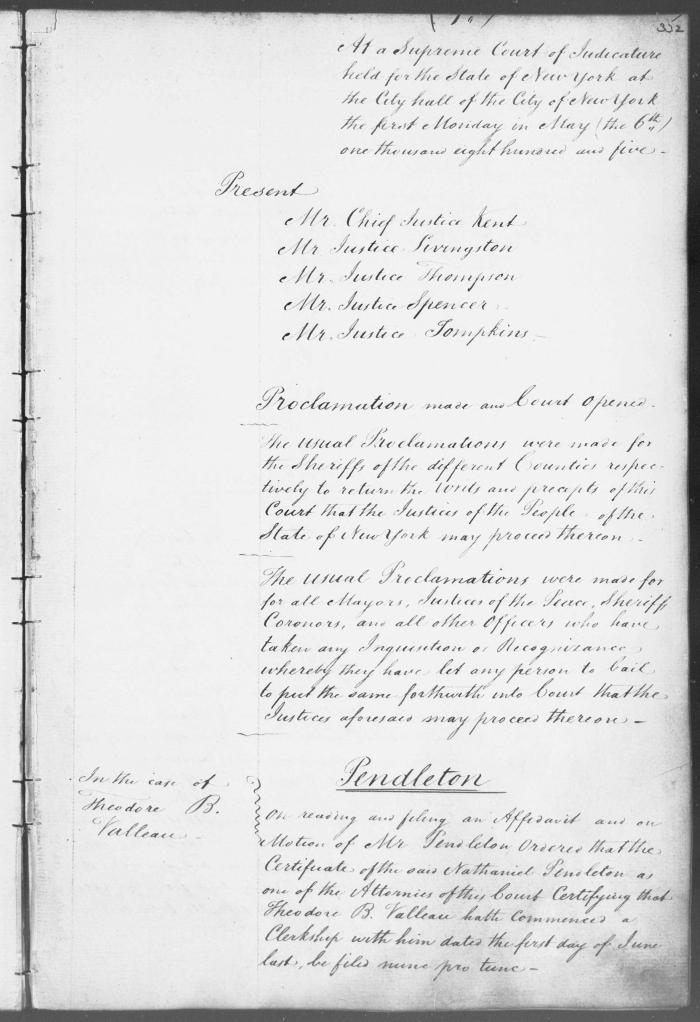 352
At a Supreme Court of Judicature
held for the State of New York at
the City hall of the City of New York
the first Monday in May (the 6th)
one thousand eight hundred and five -
Present
Mr. Chief Justice Kent
Mr Justice Livingston
Mr. Justice Thompson
Mr. Justice Spencer
Mr. Justice Tompkins -
Proclamation made and Court opened -
The usual Proclamations were made for
the Sheriffs of the different Counties respec-
tively to return the Writs and precepts of this
Court that the Justices of the People of the
State of New York may proceed thereon -
The usual Proclamations were made for
for all Mayors, Justices of the Peace, Sheriffs
Coronors, and all other Officers who have
taken any Inquisition or Recognizance
whereby they have let any person to bail
to put the same forthwith into Court that the
Justices aforesaid may proceed thereon -
Pendleton
In the case of
Theodore B.
Valleau -
On reading and filing an Affidavit and on
Motion of Mr Pendleton Ordered that the
Certificate of the said Nathaniel Pendleton as
one of the Attornies of this Court Certifying that
Theodore B. Valleau hath Commenced a
Clerkship with him dated the first day of June
last, be filed nunc pro tunc -